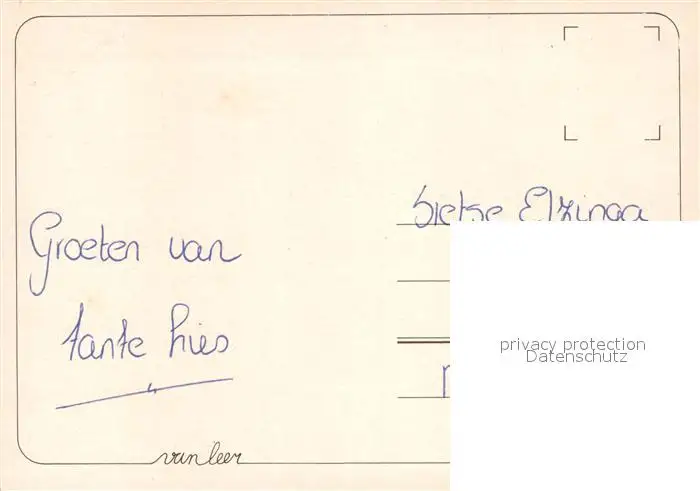 Groeten van
tante hies
van leer
Sietse Elzinga
privacy protection
Datenschutz